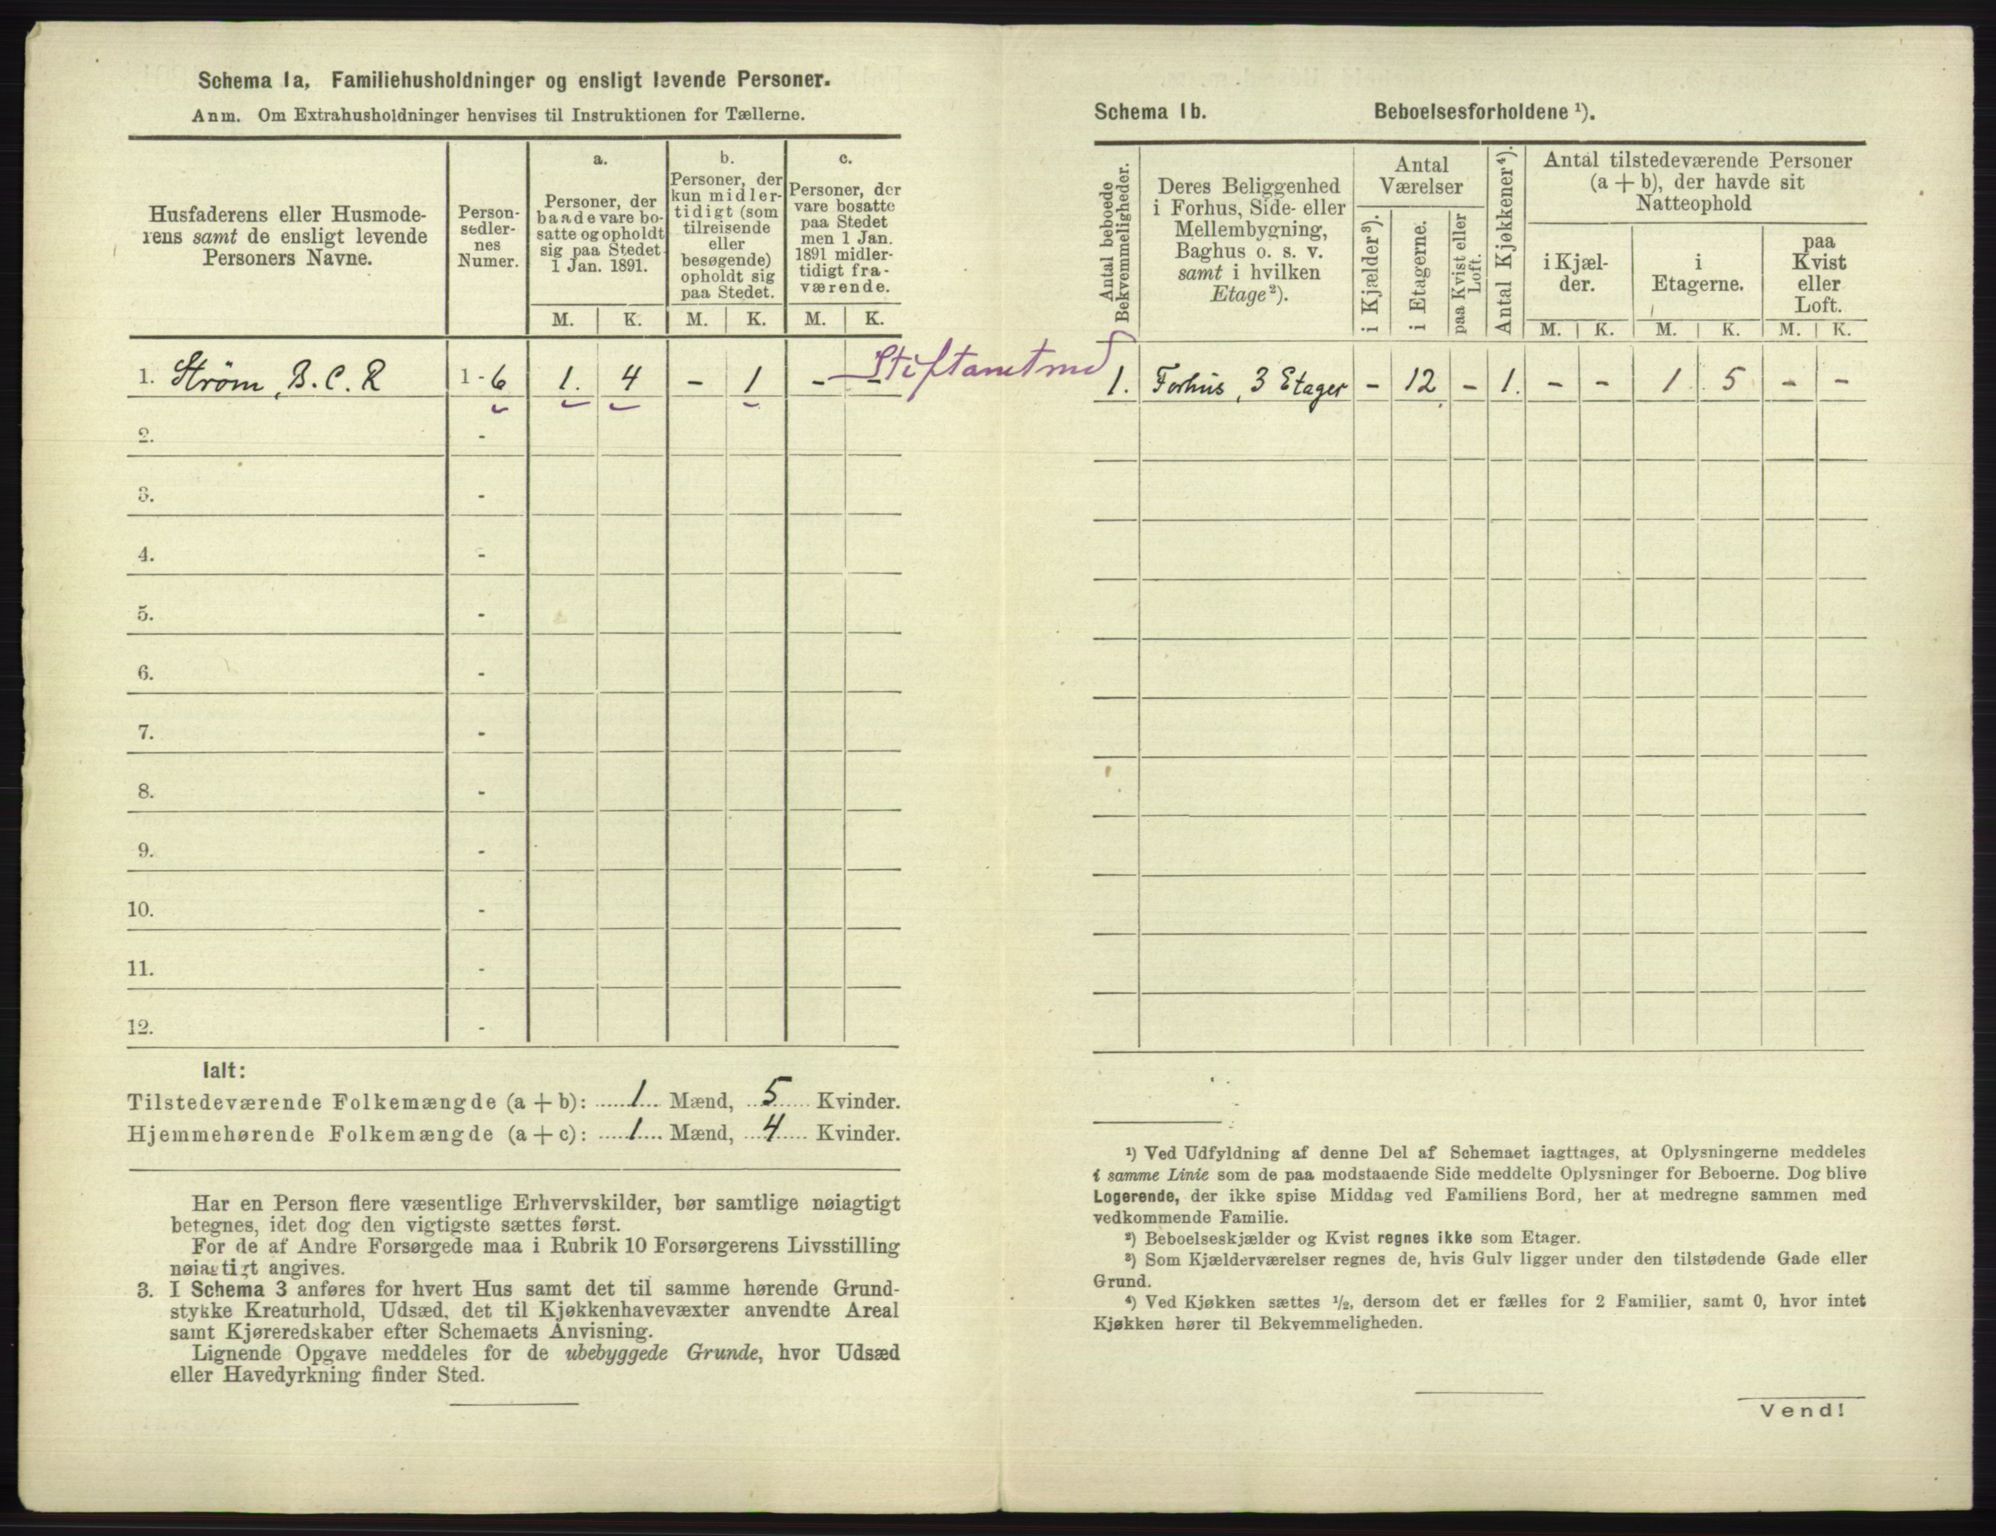 Schema 1a, Familiehusholdninger og ensligt levende Personer.
Anm. Om Extrahusholdninger henvises til Instruktionen for Tællerne.
Husfaderens eller Husmode-
rens samt de ensligt levende
Personers Navne.
Person-
sedler-
nes
Numer.
a.
Personer, der
baade vare bo-
satte og opholdt
sig paa Stedet
1 Jan. 1891.
b.
Personer, der
kun midler-
tidigt (som
tilreisende
eller
besøgende)
opholdt sig
paa Stedet.
c.
Personer, der
vare bosatte
paa Stedet
men 1 Jan.
1891 midler-
tidigt fra-
værende.
M. K. M. K. M. K.
1. Strøm, B. C. R 1 - 6 1. 4 - 1 - - Stiftamtmd
2. -
3. -
4. -
5. -
6. -
7. -
8. -
9. -
10. -
11. -
12. -
Ialt:
Tilstedeværende Folkemængde (a + b): 1 Mænd, 5 Kvinder.
Hjemmehørende Folkemængde (a + c): 1 Mænd, 4 Kvinder.
Har en Person flere væsentlige Erhvervskilder, bør samtlige nøiagtigt
betegnes, idet dog den vigtigste sættes først.
For de af Andre Forsørgede maa i Rubrik 10 Forsørgerens Livsstilling
nøiagtigt angives.
3. I Schema 3 anføres for hvert Hus samt det til samme hørende Grund-
stykke Kreaturhold, Udsæd, det til Kjøkkenhavevæxter anvendte Areal
samt Kjøreredskaber efter Schemaets Anvisning.
Lignende Opgave meddeles for de ubebyggede Grunde, hvor Udsæd
eller Havedyrkning finder Sted.
Schema 1b. Beboelsesforholdene ¹).
Antal beboede
Bekvemmeligheder.
Deres Beliggenhed
i Forhus, Side- eller
Mellembygning,
Baghus o. s. v.
samt i hvilken
Etage²).
Antal
Værelser
i Kjælder³).
i Etagerne.
paa Kvist eller
Loft.
Antal Kjøkkener⁴).
Antal tilstedeværende Personer
(a + b), der havde sit
Natteophold
i Kjæl-
der.
i
Etagerne.
paa
Kvist
eller
Loft.
M. K. M. K. M. K.
1. Forhus, 3 Etager - 12 - 1. - - 1 5 - -
¹) Ved Udfyldning af denne Del af Schemaet iagttages, at Oplysningerne meddeles
i samme Linie som de paa modstaaende Side meddelte Oplysninger for Beboerne. Dog blive
Logerende, der ikke spise Middag ved Familiens Bord, her at medregne sammen med
vedkommende Familie.
²) Beboelseskjælder og Kvist regnes ikke som Etager.
³) Som Kjælderværelser regnes de, hvis Gulv ligger under den tilstødende Gade eller
Grund.
⁴) Ved Kjøkken sættes ½, dersom det er fælles for 2 Familier, samt 0, hvor intet
Kjøkken hører til Bekvemmeligheden.
Vend!